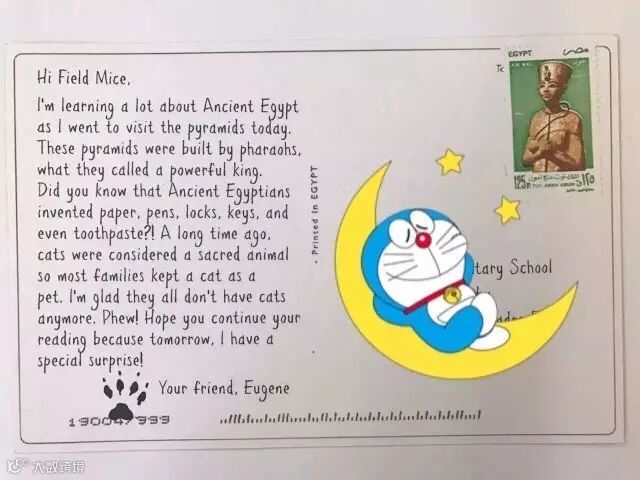 Hi Field Mice,
I'm learning a lot about Ancient Egypt
as I went to visit the pyramids today.
These pyramids were built by pharaohs,
what they called a powerful king.
Did you know that Ancient Egyptians
invented paper, pens, locks, keys, and
even toothpaste?! A long time ago,
cats were considered a sacred animal
so most families kept a cat as a
pet. I'm glad they all don't have cats
anymore. Phew! Hope you continue your
reading because tomorrow, I have a
special surprise!
Your friend, Eugene
190047999
- Printed in EGYPT
EGYPT مصر
AIR MAIL
125
١٢٥
tary School
大数跨境